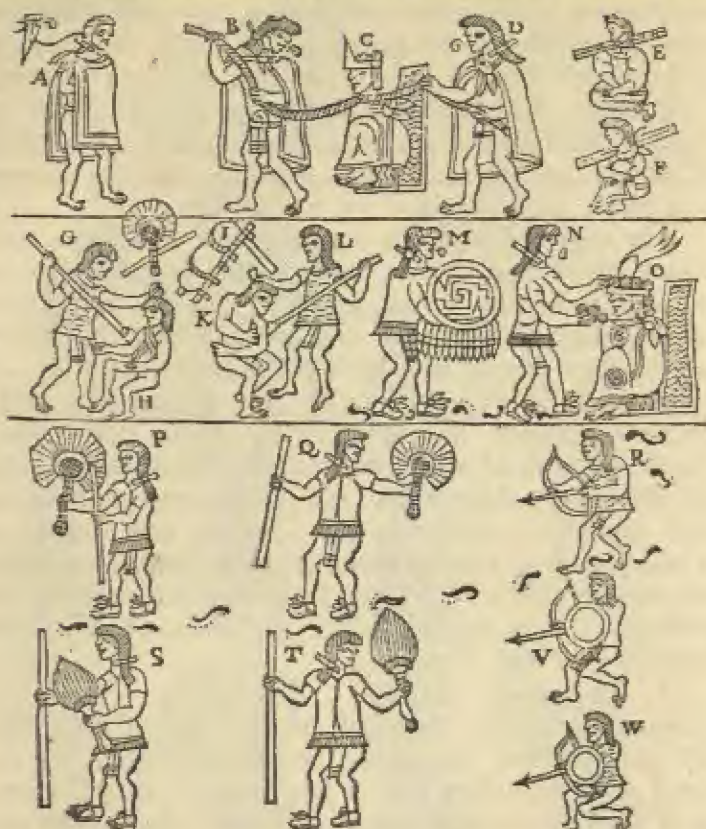 A
B
C
D
E
F
G
H
I
K
L
M
N
O
P
Q
R
S
T
V
W